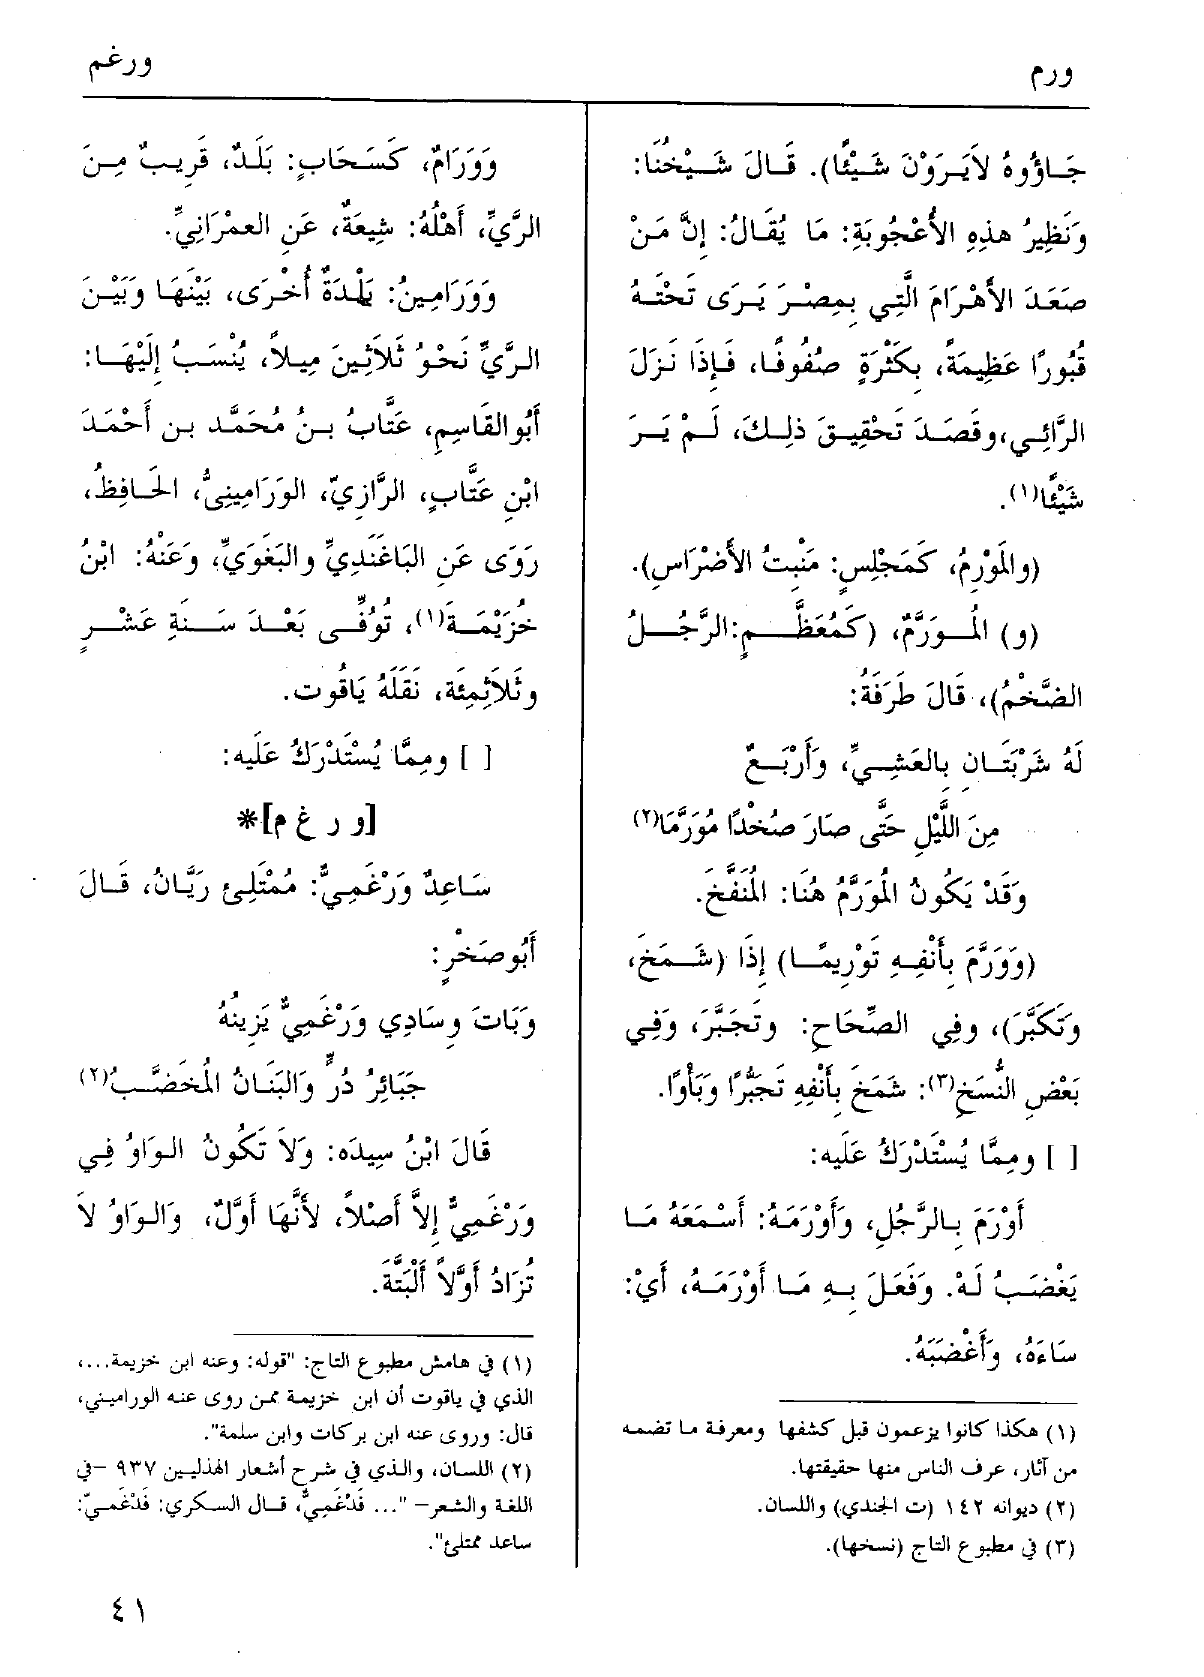 ورم
ورغم
جَاؤُوهُ لاَيَرَوْنَ شَيْئًا). قَالَ شَيْخُنَا:
وَنَظِيرُ هذِهِ الأُعْجُوبَةِ: مَا يُقَالُ: إِنَّ مَنْ
صَعَدَ الأَهْرَامَ الَّتِي بِمِصْرَ يَرَى تَحْتَهُ
قُبُورًا عَظِيمَةً، بِكَثْرَةٍ صُفُوفًا، فَإِذَا نَزَلَ
الرَّائِي، وقَصَدَ تَحْقِيقَ ذلِكَ، لَمْ يَرَ
شَيْئًا(١).
(والمَوْرِمُ، كَمَجْلِسٍ: مَنْبِتُ الأَضْرَاسِ).
(و) المُوَرَّمُ، (كَمُعَظَّمٍ: الرَّجُلُ
الضَّخْمُ)، قَالَ طَرَفَةُ:
لَهُ شَرْبَتَانِ بِالعَشِيِّ، وَأَرْبَعٌ
مِنَ اللَّيْلِ حَتَّى صَارَ صُخْدًا مُوَرَّمَا(٢)
وَقَدْ يَكُونُ المُوَرَّمُ هُنَا: المُنَفَّخَ.
(وَوَرَّمَ بِأَنْفِهِ تَوْرِيمًا) إِذَا (شَمَخَ،
وَتَكَبَّرَ)، وفِي الصِّحَاحِ: وتَجَبَّرَ، وَفِي
بَعْضِ النُّسَخِ(٣): شَمَخَ بِأَنْفِهِ تَجَبُّرًا وَبَأْوًا.
[ ] ومِمَّا يُسْتَدْرَكُ عَلَيه:
أَوْرَمَ بِالرَّجُلِ، وَأَوْرَمَهُ: أَسْمَعَهُ مَا
يَغْضَبُ لَهُ. وَفَعَلَ بِهِ مَا أَوْرَمَهُ، أَيْ:
سَاءَهُ، وَأَغْضَبَهُ.
(١) هكذا كانوا يزعمون قبل كشفها ومعرفة ما تضمه
من آثار، عرف الناس منها حقيقتها.
(٢) ديوانه ١٤٢ (ت الجندي) واللسان.
(٣) في مطبوع التاج (نسخها).
وَوَرَامٌ، كَسَحَابٍ: بَلَدٌ، قَرِيبٌ مِنَ
الرَّيِّ، أَهْلُهُ: شِيعَةٌ، عَنِ العِمْرَانِيِّ.
وَوَرَامِينُ: بَلْدَةٌ أُخْرَى، بَيْنَهَا وَبَيْنَ
الرَّيِّ نَحْوُ ثَلاَثِينَ مِيلاً، يُنْسَبُ إِلَيْهَا:
أَبُو القَاسِمِ، عَتَّابُ بنُ مُحَمَّد بن أَحْمَدَ
ابْنِ عَتَّابٍ، الرَّازِيّ، الوَرَامِينِيُّ، الحَافِظُ،
رَوَى عَنِ البَاغَنْدِيِّ والبَغَوِيِّ، وَعَنْهُ: ابْنُ
خُزَيْمَةَ(١)، تُوُفِّى بَعْدَ سَنَةِ عَشْرٍ
وثَلاَثِمِئَة، نَقَلَهُ يَاقُوت.
[ ] ومِمَّا يُسْتَدْرَكُ عَلَيه:
[و ر غ م]*
سَاعِدٌ وَرْغَمِيٌّ: مُمْتَلِئٌ رَيَّانُ، قَالَ
أَبُو صَخْرٍ:
وَبَاتَ وِسَادِي وَرْغَمِيٌّ يَزِينُهُ
جَبَائِرُ دُرٍّ وَالبَنَانُ المُخَضَّبُ(٢)
قَالَ ابْنُ سِيدَه: وَلاَ تَكُونُ الوَاوُ فِي
وَرْغَمِيٍّ إِلاَّ أَصْلاً، لأَنَّهَا أَوَّلٌ، وَالوَاوُ لاَ
تُزَادُ أَوَّلاً أَلْبَتَّةَ.
(١) في هامش مطبوع التاج: "قوله: وعنه ابن خزيمة...،
الذي في ياقوت أن ابن خزيمة ممن روى عنه الوراميني،
قال: وروى عنه ابن بركات وابن سلمة".
(٢) اللسان، والذي في شرح أشعار الهذليين ٩٣٧ –في
اللغة والشعر– "... فَدْغَمِيٌّ، قال السكري: فَدْغَمِيّ:
ساعد ممتلئ".
٤١